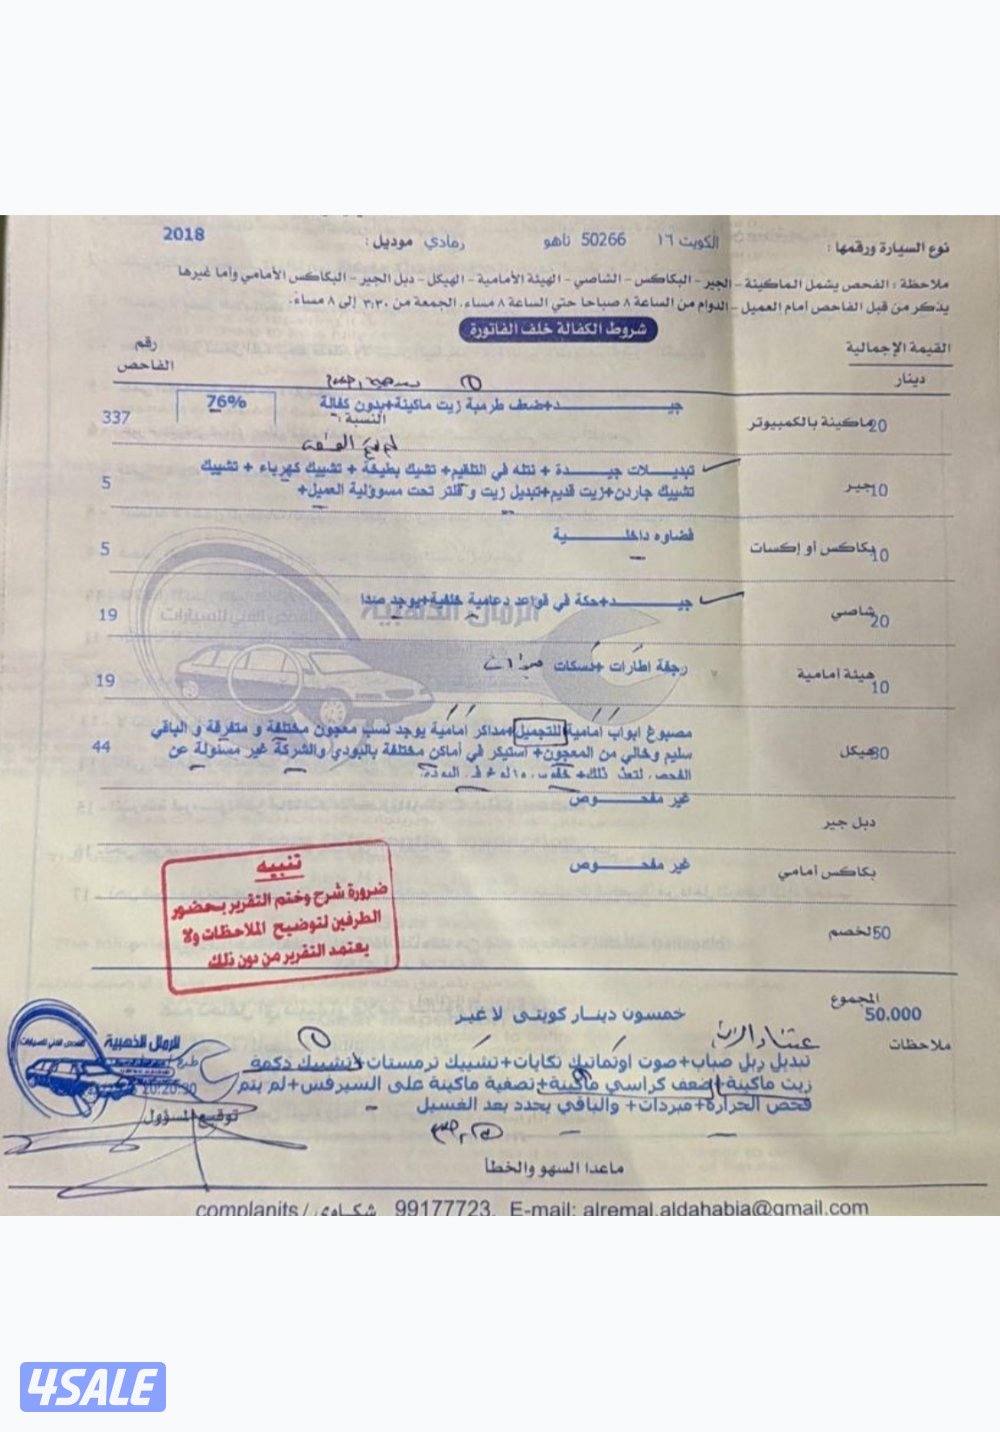 نوع السيارة ورقمها : الكويت ١٦ 50266 تاهو رمادي موديل : 2018
ملاحظة : الفحص يشمل الماكينة - الجير - البكاكس - الشاصي - الهيئة الأمامية - الهيكل - دبل الجير - البكاكس الأمامي وأما غيرها
يذكر من قبل الفاحص أمام العميل - الدوام من الساعة ٨ صباحا حتى الساعة ٨ مساء. الجمعة من ٣:٣٠ إلى ٨ مساء.
شروط الكفالة خلف الفاتورة
القيمة الإجمالية
دينار
رقم
الفاحص
ماكينة بالكمبيوتر 20
جيـــــــد+ضعف طرمبة زيت ماكينة+بدون كفالة
النسبة :
76%
337
جير 10
تبديـــلات جيـــدة + نتله في التلقيم+ تشيك بطيئة + تشييك كهرباء + تشييك
تشييك جاردن+زيت قديم+تبديل زيت و فلتر تحت مسوؤلية العميل+
5
بكاكس أو إكسات 10
قضاوه داخلـــــــية
5
شاصي 20
جيـــــــد+حكة في قواعد دعامية خلفية+يوجد صدا
19
الرمال الذهبية
الفحص الفني للسيارات
هيئة أمامية 10
رجفة اطارات +كسكات
19
هيكل 30
مصبوغ ابواب امامية للتجميل+مداكر أمامية يوجد نسب معجون مختلفة و متفرقة و الباقي
سليم وخالي من المعجون+ استيكر في أماكن مختلفة بالبودي والشركة غير مسئولة عن
الفحص لتعذر ذلك+
44
دبل جير
غير مفحـــــــوص
بكاكس أمامي
غير مفحـــــــوص
الخصم 50
تنبيه
ضرورة شرح وختم التقرير بحضور
الطرفين لتوضيح الملاحظات ولا
يعتمد التقرير من دون ذلك
المجموع
50.000
خمسون دينار كويتى لا غير
ملاحظات
تبديل ربل صباب+صوت اوتماتيك تكايات+تشييك ترمستات+تشييك دكمة
زيت ماكينة+ضعف كراسي ماكينة+تصفية ماكينة على السيرفس+لم يتم
فحص الحرارة+مبردات+ والباقي يحدد بعد الغسيل
الرمال الذهبية
الفحص الفني للسيارات
10:20:30
توقيع المسؤول
ماعدا السهو والخطأ
complanits / شكاوي 99177723. E-mail: alremal.aldahabia@gmail.com
4SALE